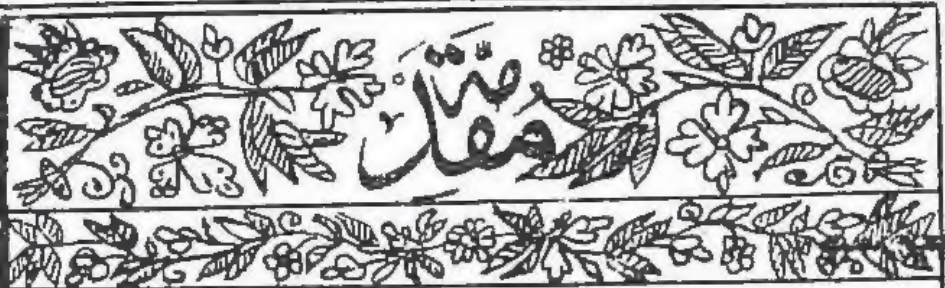 مقدمہ